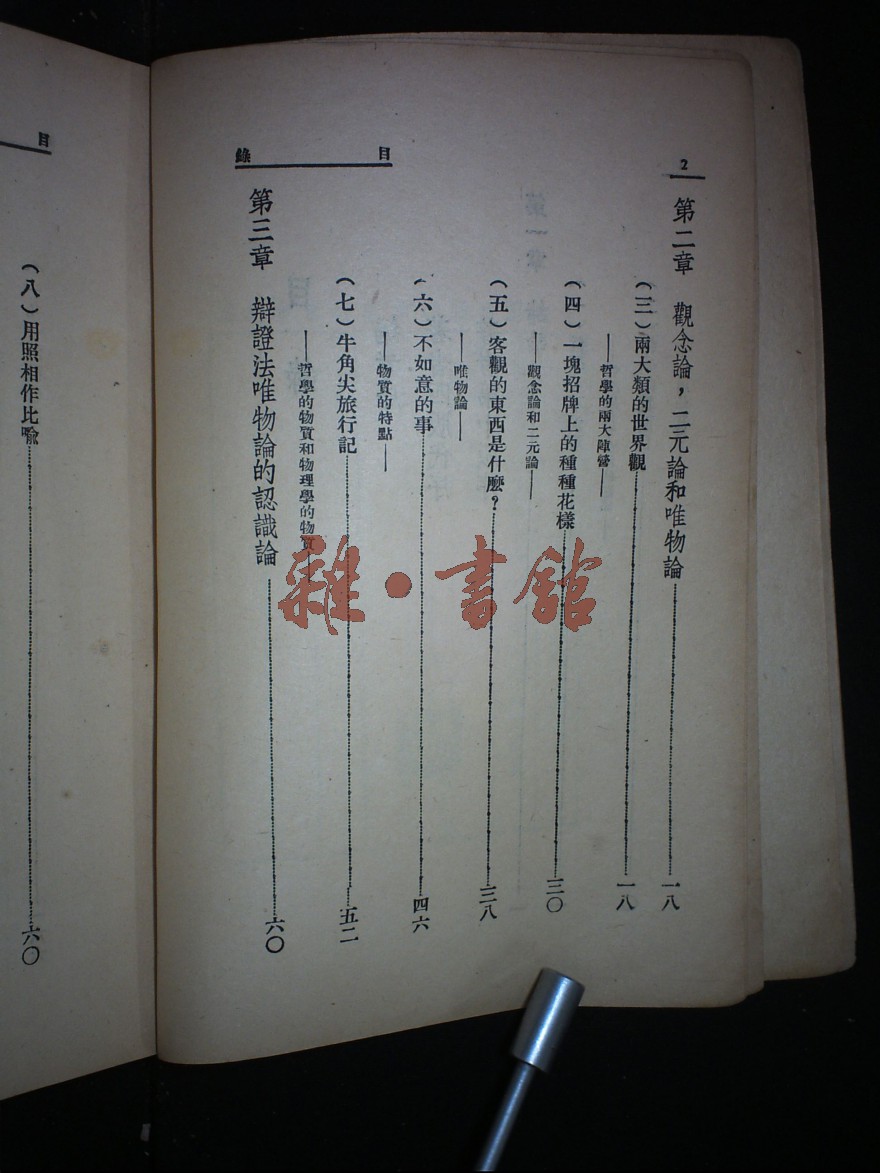 2
目錄
第二章　觀念論，二元論和唯物論……一八
（三）兩大類的世界觀……一八
——哲學的兩大陣營——
（四）一塊招牌上的種種花樣……三〇
——觀念論和二元論——
（五）客觀的東西是什麼？……三八
——唯物論——
（六）不如意的事……四六
——物質的特點——
（七）牛角尖旅行記……五二
——哲學的物質和物理學的物質
第三章　辯證法唯物論的認識論……六〇
目
（八）用照相作比喩……六〇
雜·書館